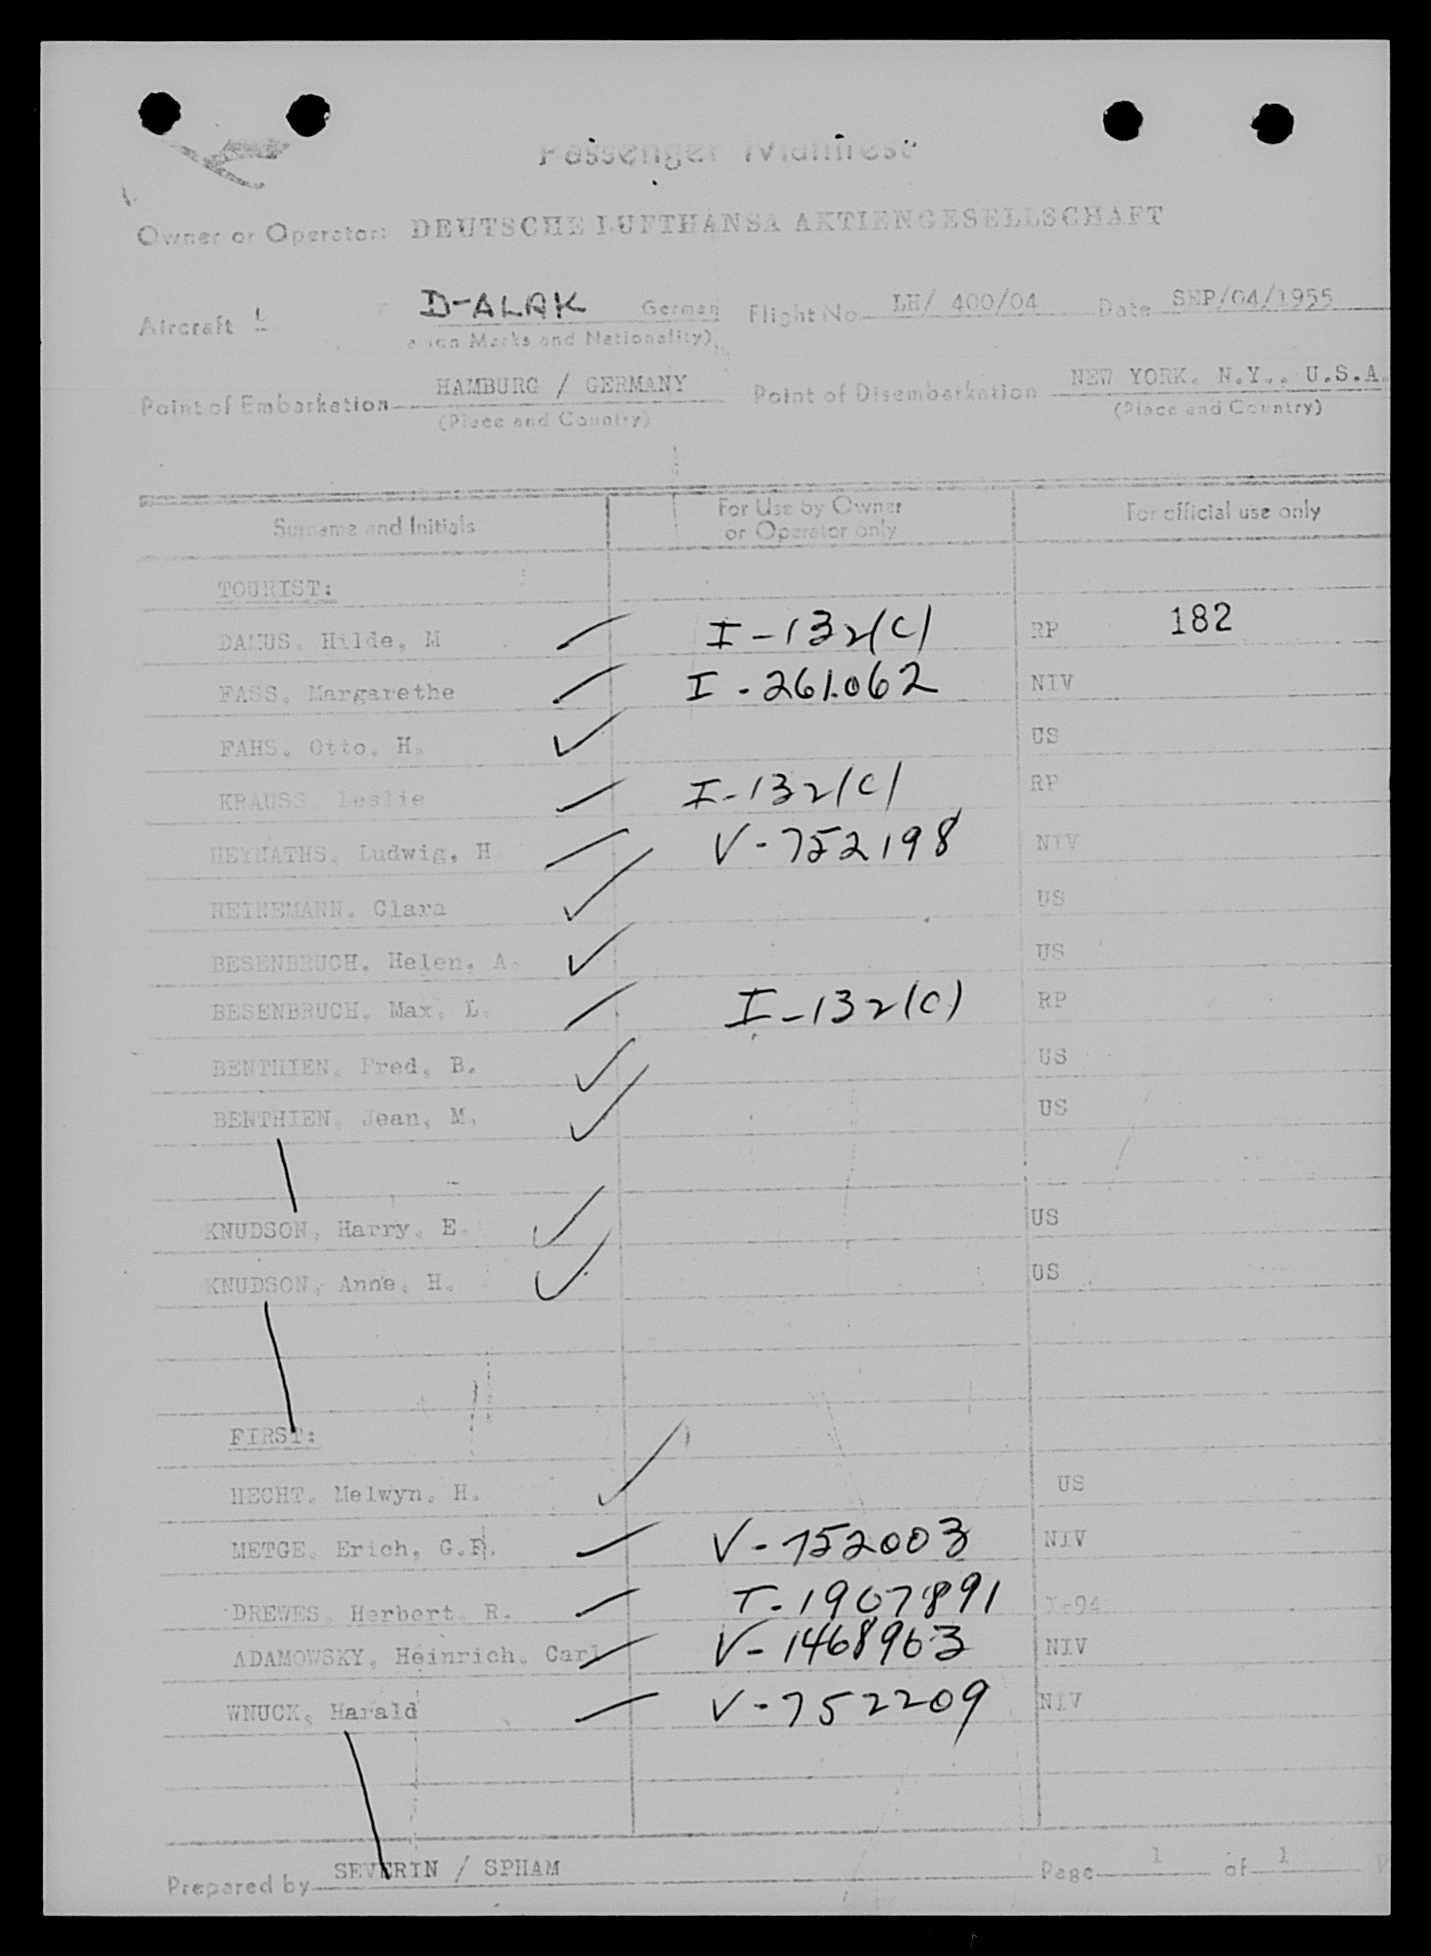 Passenger Manifest
Owner or Operator: DEUTSCHE LUFTHANSA AKTIENGESELLSCHAFT
Aircraft D-ALAK German Flight No. LH/ 400/04 Date SEP/04/1955
ion Marks and Nationality)
Point of Embarkation HAMBURG / GERMANY Point of Disembarkation NEW YORK. N.Y., U.S.A.
(Place and Country) (Place and Country)
Surname and Initials For Use by Owner or Operator only For official use only
TOURIST:
DAMUS, Hilde, M I-132(C) RP 182
FASS, Margarethe I-261.062 NIV
FAHS, Otto, H. US
KRAUSS Leslie I-132(C) RP
HEYNATHS, Ludwig, H V-752198 NIV
HEINEMANN. Clara US
BESENBRUCH. Helen. A. US
BESENBRUCH. Max. L. I-132(C) RP
BENTHIEN, Fred, B. US
BENTHIEN, Jean, M. US
KNUDSON, Harry, E. US
KNUDSON, Anne, H. US
FIRST:
HECHT. Melwyn. H. US
METGE. Erich, G.F. V-752003 NIV
DREWES, Herbert R. T-1907891 I-94
ADAMOWSKY, Heinrich. Carl V-1468963 NIV
WNUCK, Harald V-752209 NIV
Prepared by SEVERIN / SPHAM Page 1 of 1